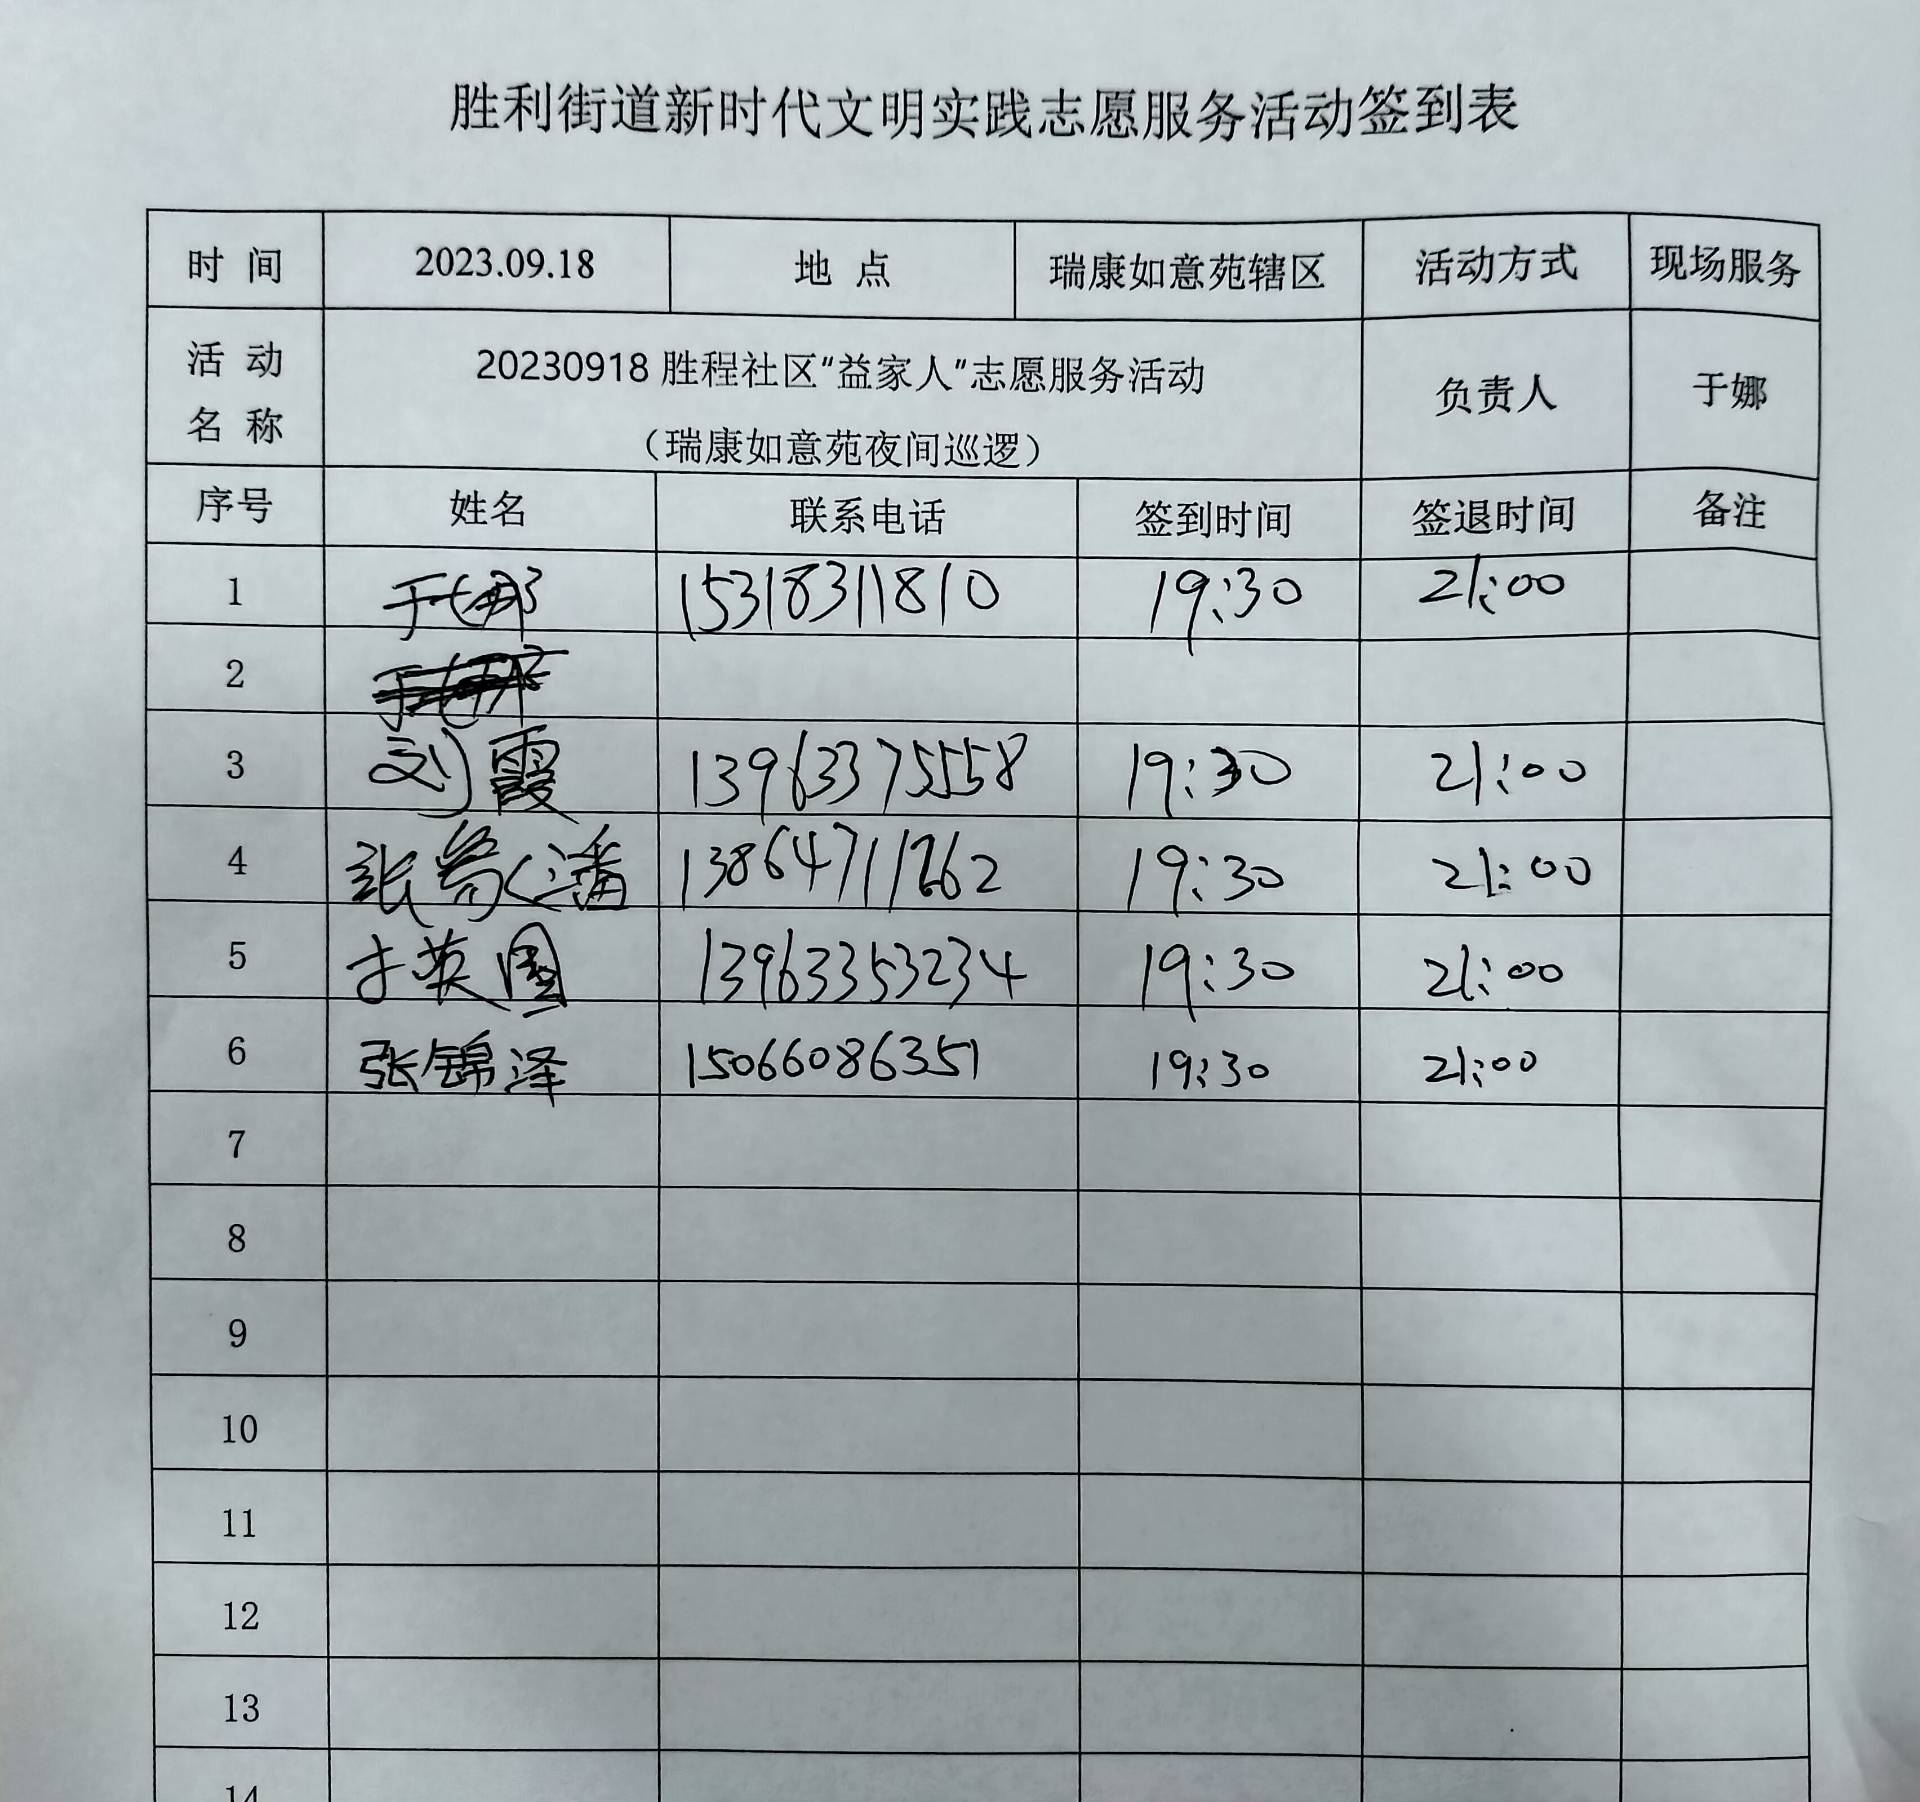 胜利街道新时代文明实践志愿服务活动签到表
时 间 2023.09.18 地 点 瑞康如意苑辖区 活动方式 现场服务
活 动 名 称 20230918 胜程社区“益家人”志愿服务活动 负责人 于娜
（瑞康如意苑夜间巡逻）
序号 姓名 联系电话 签到时间 签退时间 备注
1 于娜 15318311810 19:30 21:00
2
3 刘霞 13963375558 19:30 21:00
4 张 潘 19:30 21:00
5 于英 13963353234 19:30 21:00
6 张锦泽 15066086351 19:30 21:00
7
8
9
10
11
12
13
14